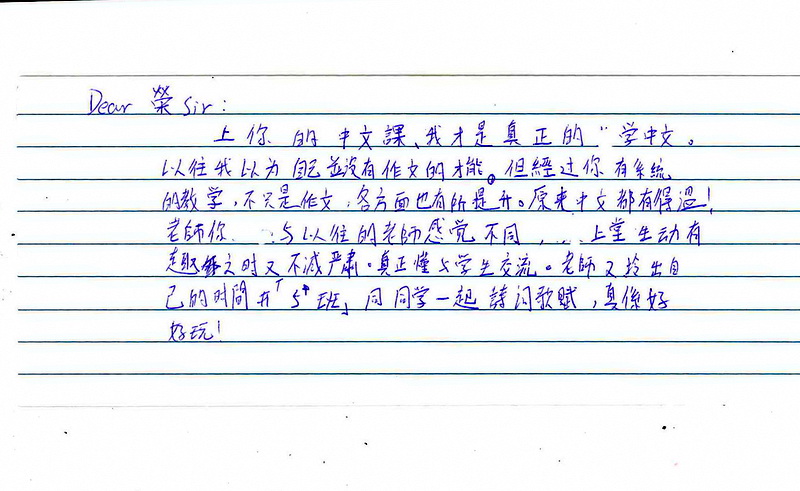 Dear 榮 Sir:
上你的中文課、我才是真正的“学中文。
以往我以为自己並没有作文的才能。但經过你有系統
的教学，不只是作文，各方面也有所提升。原來中文都有得温!
老師你...与以往的老師感觉不同，...上堂生动有
趣之时又不減严肃。真正懂与学生交流。老師又拎出自
己的时間开「5*班」同同学一起詩词歌赋，真係好
好玩!